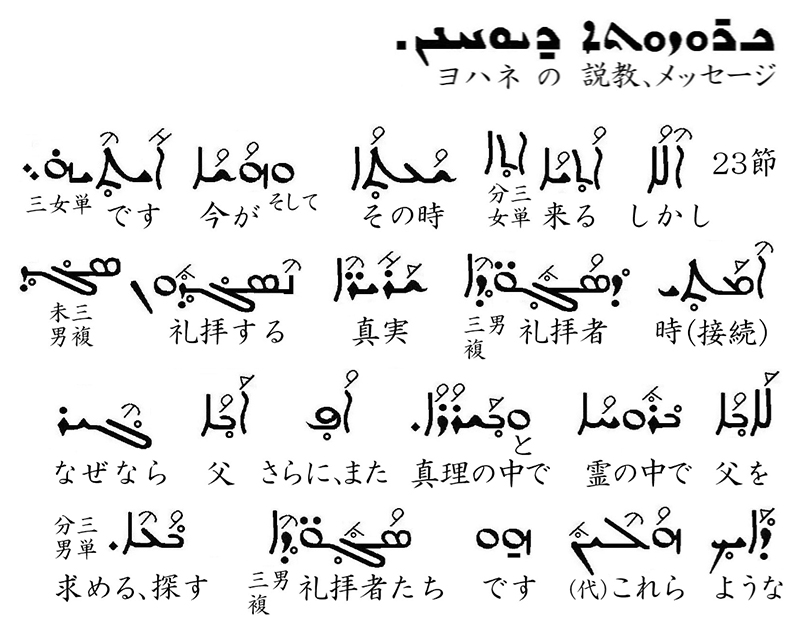 ܟܪܘܙܘܬܐ ܕܝܘܚܢܢ.
ヨハネ の 説教、メッセージ
23節 ܐܠܐ ܐܬܝܐ ܐܬܐ ܫܥܬܐ ܘܗܫܐ ܐܝܬܝܗ
三女単 です 今が そして その時 分三女単 来る しかし
ܐܡܬܝ ܕܣܓܘܕܐ ܫܪܝܪܐ ܢܣܓܕܘܢ ܣܓܕ
未三男複 礼拝する 真実 三男複 礼拝者 時(接続)
ܠܐܒܐ ܒܪܘܚܐ ܘܒܫܪܪܐ. ܐܦ ܐܒܐ ܓܝܪ
なぜなら 父 さらに、また 真理の中で と 霊の中で 父を
ܕܐܝܟ ܗܠܝܢ ܗܘ ܣܓܘܕܐ ܒܥܐ.
分三男単 求める、探す 三男複 礼拝者たち です (代)これら ような